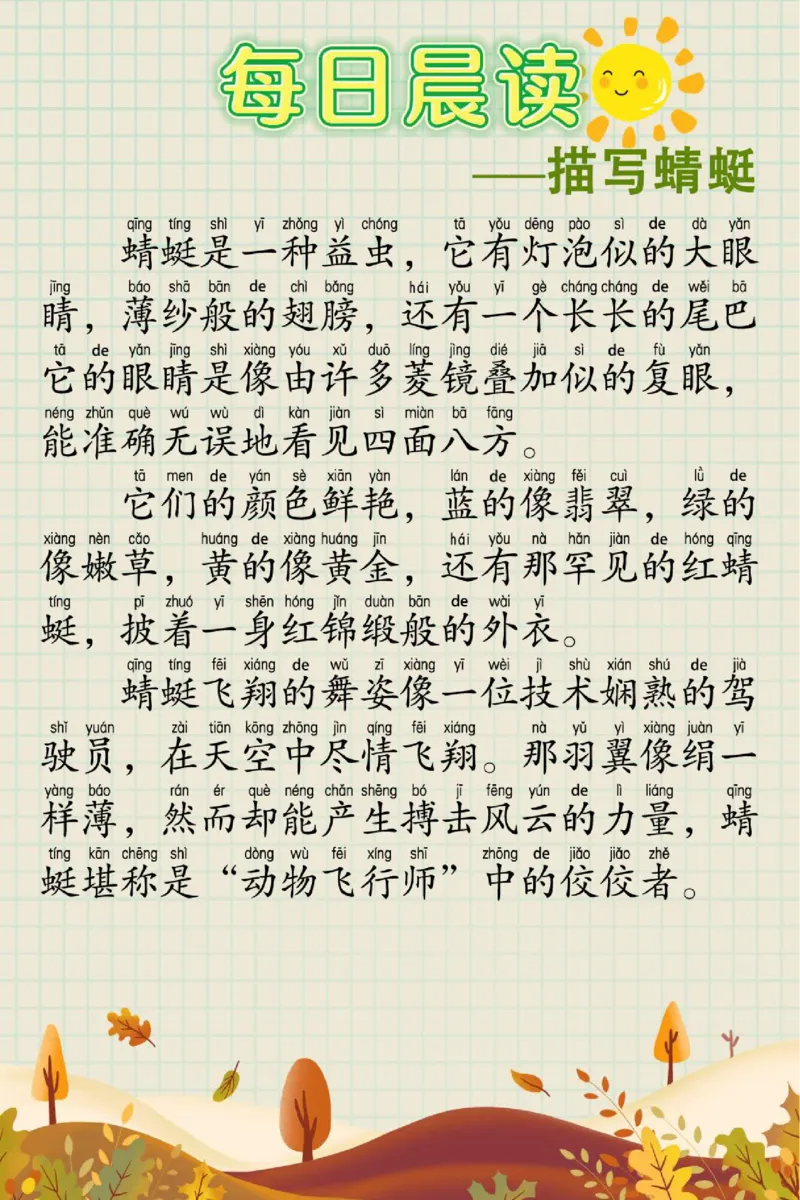 每日晨读
——描写蜻蜓
qīng tíng shì yī zhǒng yì chóng tā yǒu dēng pào sì de dà yǎn
蜻蜓是一种益虫，它有灯泡似的大眼
jīng báo shā bān de chì bǎng hái yǒu yī gè cháng cháng de wěi bā
睛，薄纱般的翅膀，还有一个长长的尾巴
tā de yǎn jīng shì xiàng yóu xǔ duō líng jìng dié jiā sì de fù yǎn
它的眼睛是像由许多菱镜叠加似的复眼，
néng zhǔn què wú wù dì kàn jiàn sì miàn bā fāng
能准确无误地看见四面八方。
tā men de yán sè xiān yàn lán de xiàng fěi cuì lǜ de
它们的颜色鲜艳，蓝的像翡翠，绿的
xiàng nèn cǎo huáng de xiàng huáng jīn hái yǒu nà hǎn jiàn de hóng qīng
像嫩草，黄的像黄金，还有那罕见的红蜻
tíng pī zhuó yī shēn hóng jǐn duàn bān de wài yī
蜓，披着一身红锦缎般的外衣。
qīng tíng fēi xiáng de wǔ zī xiàng yī wèi jì shù xián shú de jià
蜻蜓飞翔的舞姿像一位技术娴熟的驾
shǐ yuán zài tiān kōng zhōng jìn qíng fēi xiáng nà yǔ yì xiàng juàn yī
驶员，在天空中尽情飞翔。那羽翼像绢一
yàng báo rán ér què néng chǎn shēng bó jī fēng yún de lì liáng qīng
样薄，然而却能产生搏击风云的力量，蜻
tíng kān chēng shì dòng wù fēi xíng shī zhōng de jiǎo jiǎo zhě
蜓堪称是“动物飞行师”中的佼佼者。